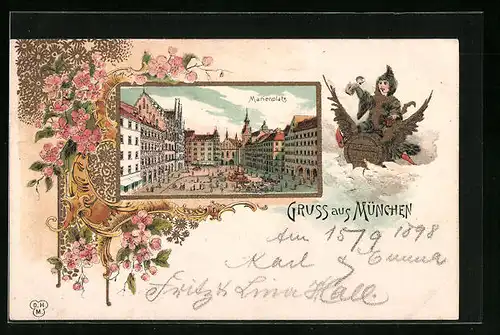 Marienplatz
GRUSS AUS MÜNCHEN
Am 15/9 1898
Karl & Emma
Fritz & Lina Hall.
D. H.
M.